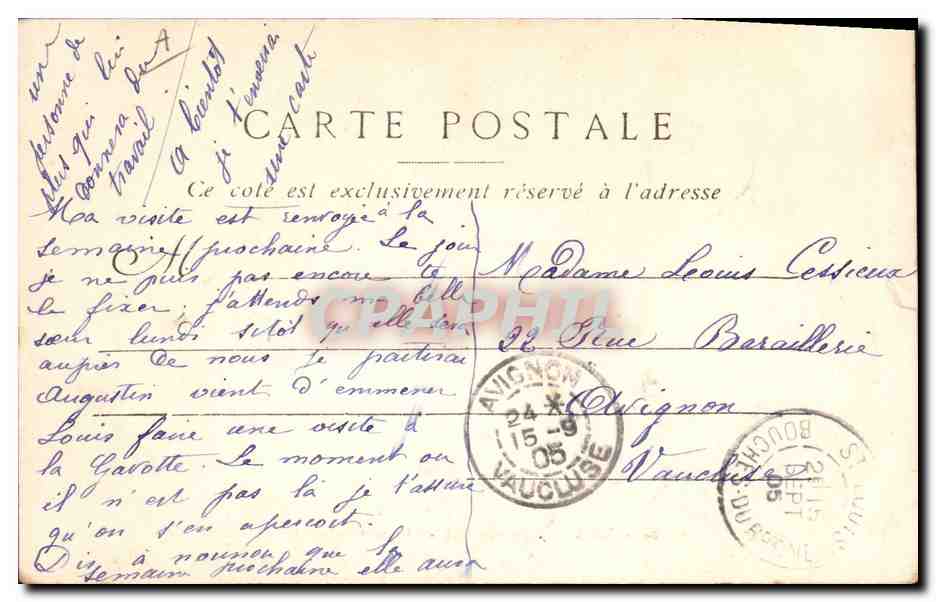 CARTE POSTALE
Ce coté est exclusivement réservé à l'adresse
Ma visite est renvoyée à la
semaine prochaine. Le jour
je ne puis pas encore te
le fixer, j'attends ma belle
sœur lundi sitôt qu'elle sera
auprès de nous je partirai
Augustin vient d'emmener
Louis faire une visite à
la Gavotte. Le moment ou
il n'est pas là je t'assure
qu'on s'en aperçoit.
Dis à nounou que la
semaine prochaine elle aura
un
personne de
plus qui lui
donnera du
travail
A bientôt
je t'enverrai
une carte
Madame Leouis Cessieux
22 Rue Baraillerie
Avignon
Vaucluse
AVIGNON
24
15 -9
05
VAUCLUSE
ST LOUIS
SEPT
05
BOUCHES-DU-RHONE
CPAPHIL